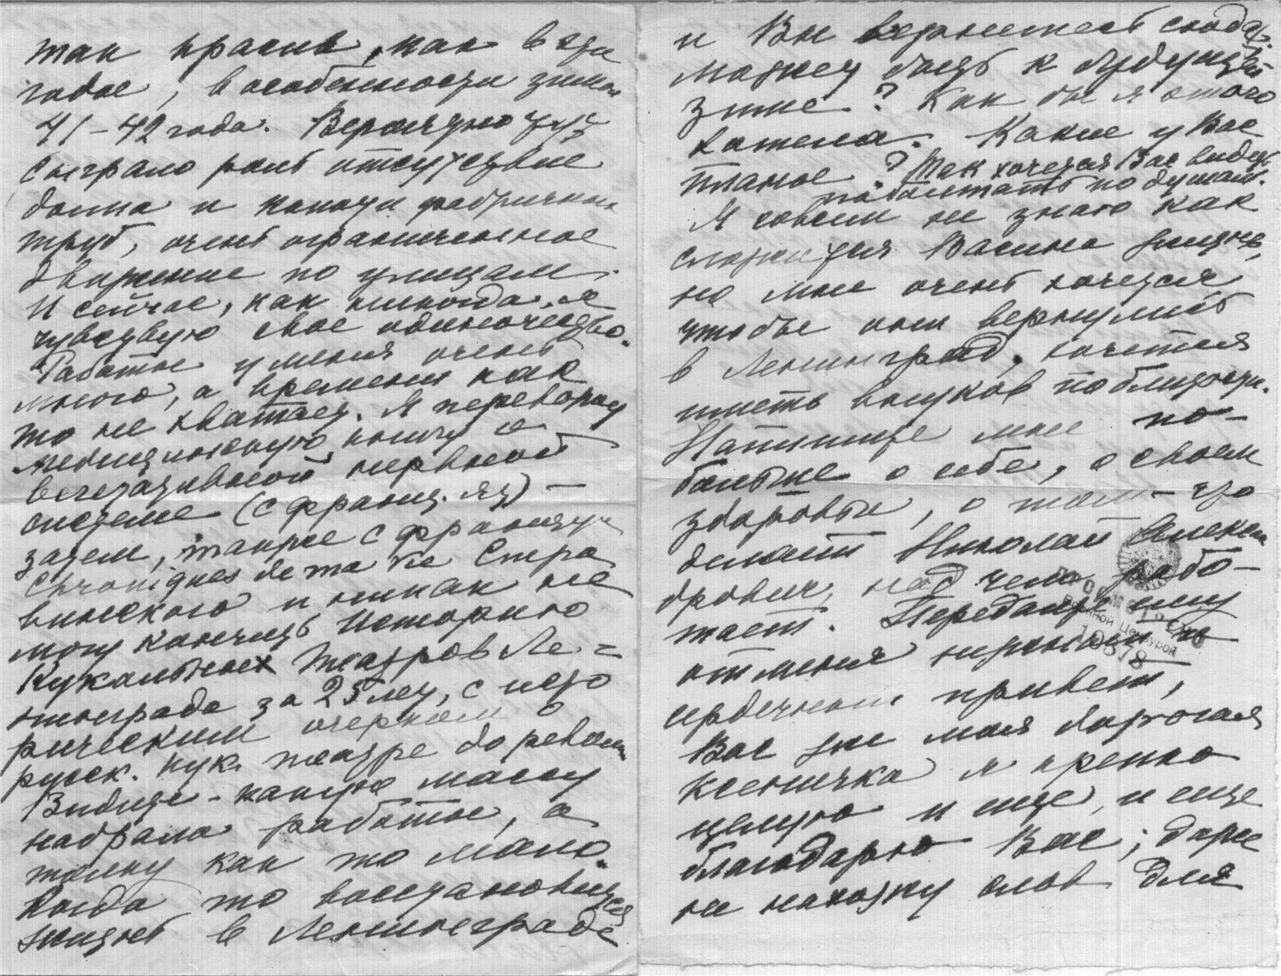 так красив, как в эти
годы, в особенности зимой
41–42 года. Вероятно тут
сыграло роль отсутствие
дыма и копоти фабричных
труб, очень ограниченное
движение по улицам.
И сейчас, как никогда, я
чувствую свое одиночество.
Работы у меня очень
много, а времени как
то не хватает. Я перевожу
медицинскую книгу о
вегетативной нервной
системе (с франц. яз) —
затем, также с французск
Chroniques de ma vie Стра
винского и никак не
могу кончить Историю
Кукольных театров Ле=
нинграда за 25 лет, с исто
рическим очерком о
русск. кук. театре до револю
Видите – какую массу
набрала работы, а
толку как то мало.
Когда то восстановится
жизнь в Ленинграде
и Вы вернетесь сюда?
может быть к будущей
зиме? Как бы я этого
хотела. Какие у Вас
планы? Так хочется Вас видеть
поболтать по душам.
Я совсем не знаю как
сложится Васина жизнь,
но мне очень хочется
чтобы они вернулись
в Ленинград, хочется
иметь внуков поблизости.
Напишите мне по-
больше о себе, о своем
здоровьи, о том – что
делает Николай Алексан
дрович, над чем рабо-
тает. Передайте ему
от меня
сердечный привет,
Вас же моя дорогая
Ксеничка я крепко
целую и еще, и еще
благодарю Вас; даже
не нахожу слов для
Военной Цензурой
10878